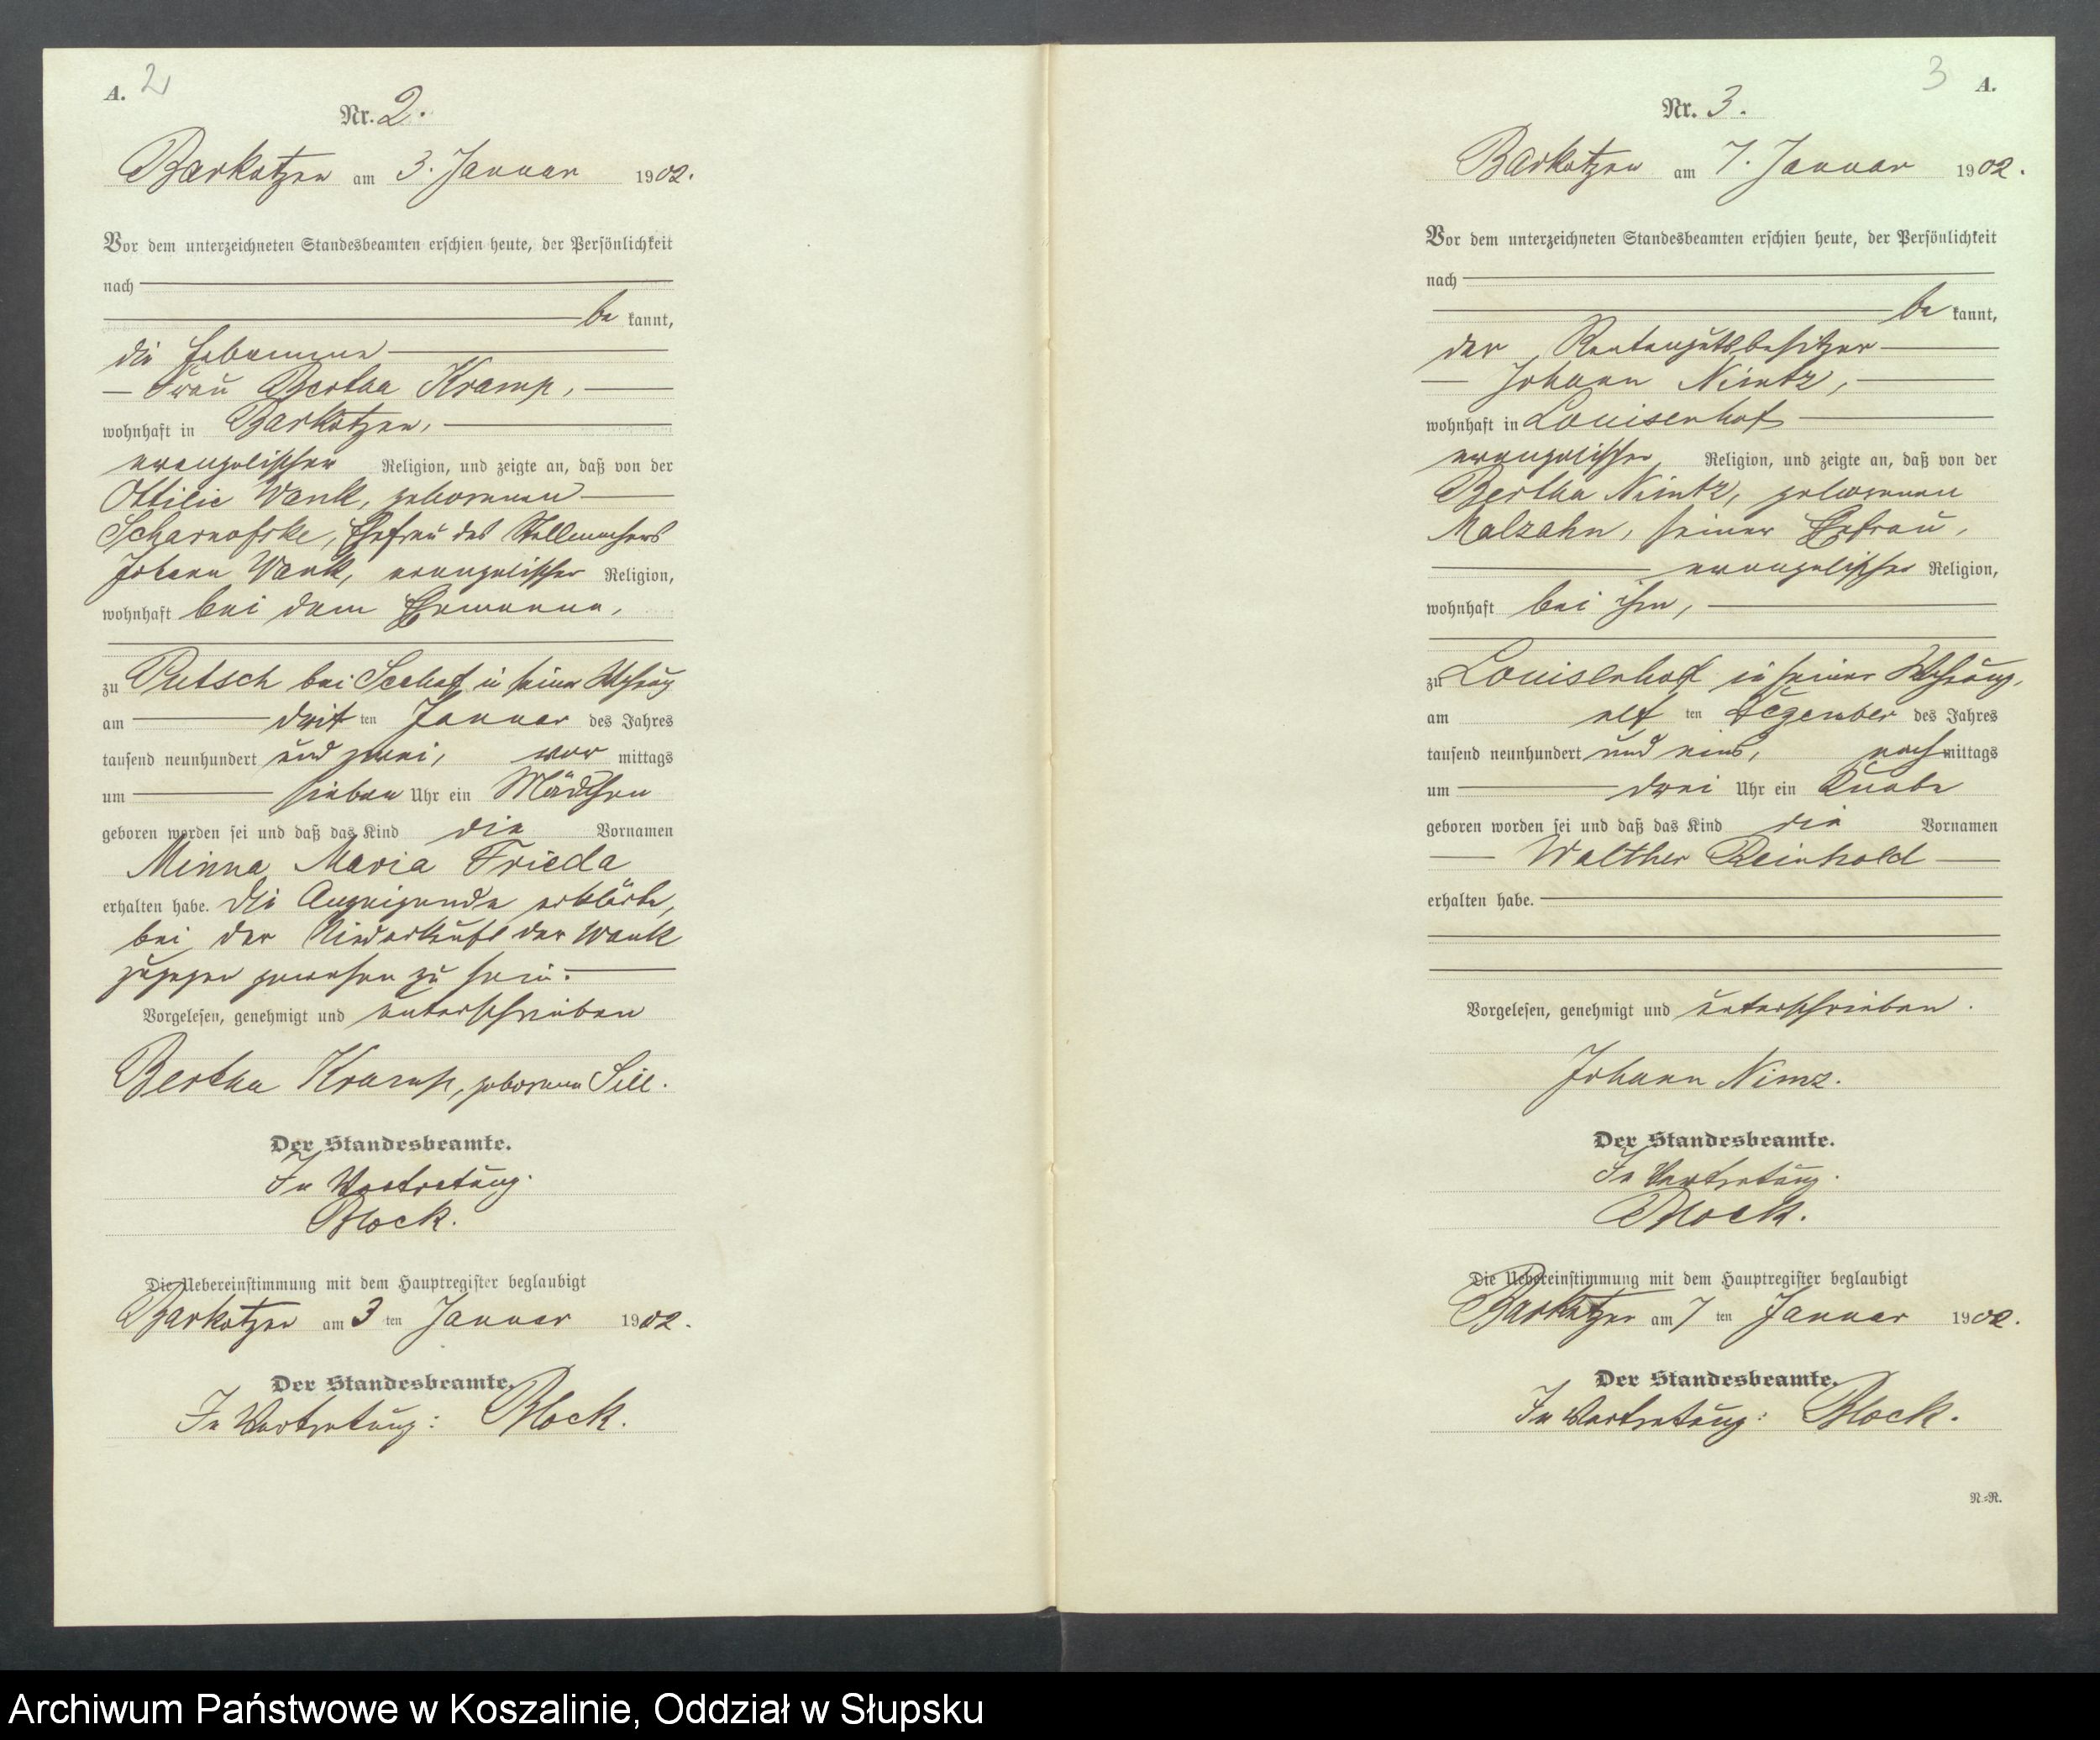 A. 2
Nr. 2.
Barkotzen am 3. Januar 1902.
Vor dem unterzeichneten Standesbeamten erschien heute, der Persönlichkeit
nach
be kannt,
die Hebamme
Frau Bertha Kramp,
wohnhaft in Barkotzen,
evangelischer Religion, und zeigte an, daß von der
Ottilie Wank, geborenen
Scharnofske, Ehefrau des Stellmachers
Johann Wank, evangelischer Religion,
wohnhaft bei dem Ehemanne,
zu Putsch bei Seehof in seiner
am dritten Januar des Jahres
tausend neunhundert und zwei, vor mittags
um sieben Uhr ein Mädchen
geboren worden sei und daß das Kind die Vornamen
Minna Maria Frieda
erhalten habe. Die Anzeigende erklärte,
bei der Niederkunft der Wank
zugegen gewesen zu sein.
Vorgelesen, genehmigt und unterschrieben
Bertha Kramp, geborene Sill.
Der Standesbeamte.
In Vertretung.
Block.
Die Uebereinstimmung mit dem Hauptregister beglaubigt
Barkotzen am 3 ten Januar 1902.
Der Standesbeamte.
In Vertretung: Block.
3 A.
Nr. 3.
Barkotzen am 7. Januar 1902.
Vor dem unterzeichneten Standesbeamten erschien heute, der Persönlichkeit
nach
be kannt,
der Rentengutsbesitzer
Johann Nimtz,
wohnhaft in Louisenhof
evangelischer Religion, und zeigte an, daß von der
Bertha Nimtz, geborenen
Malzahn, seiner Ehefrau,
evangelischer Religion,
wohnhaft bei ihm,
zu Louisenhof in seiner
am elf ten Dezember des Jahres
tausend neunhundert und eins, nach mittags
um drei Uhr ein Knabe
geboren worden sei und daß das Kind die Vornamen
Walther Reinhold
erhalten habe.
Vorgelesen, genehmigt und unterschrieben.
Johann Nimz.
Der Standesbeamte.
In Vertretung.
Block.
Die Uebereinstimmung mit dem Hauptregister beglaubigt
Barkotzen am 7 ten Januar 1902.
Der Standesbeamte.
In Vertretung: Block.
N.=R.
Archiwum Państwowe w Koszalinie, Oddział w Słupsku